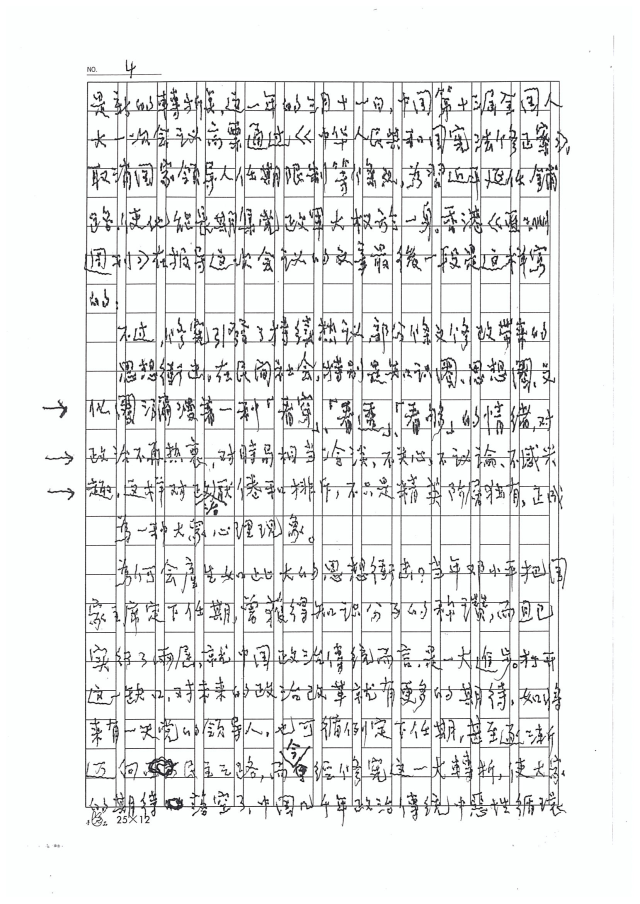 NO. 4
是新的轉折點，這一年的三月十一日，中国第十三屆全国人
大一次会议高票通过《中华人民共和国宪法修正案》，
取消国家領导人任期限制等條款，為習近平延任鋪
路，使他能長期集党政軍大权於一身。香港《亞洲
周刊》在報导這次会议的文章最後一段是這样寫
的：
不过，修宪引發了持續热议，部分條文修改帶来的
思想衝击，在民间社会，特别是知识圈、思想圈、文
化圈瀰漫着一种「看穿」、「看透」、「看够」的情绪，对
政治不再热衷，对時局相当冷淡，不关心、不议论、不感兴
趣，这样对政治厭倦和排斥，不只是精英阶层独有，正成
為一种大家心理现象。
為何会產生如此大的思想衝击？当年邓小平把国
家主席定下任期，曾獲得知识分子的称讚，而且已
实行了兩屆，就中国政治傳統而言，是一大進步。打开
這一缺口，对未来的政治改革就有更多的期待，如将
来有一天党的領导人，也可循例定下任期，甚至逐漸
迈向民主之路，而今經修宪這一大轉折，使大家
的期待落空了，中国几千年政治傳統中惡性循環
25×12